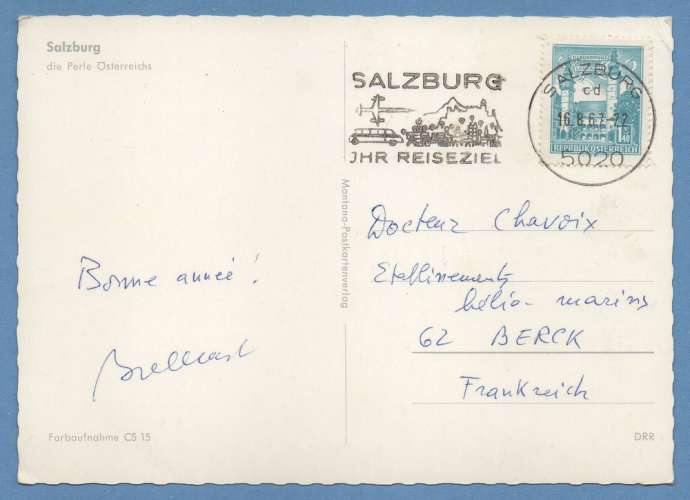 Salzburg
die Perle Österreichs
SALZBURG
JHR REISEZIEL
SALZBURG
cd
16.8.67-22
5020
REPUBLIK ÖSTERREICH
Montana-Postkartenverlag
Docteur Chavoix
Etablissements
hélio-marins
62 BERCK
Frankreich
Bonne année!
Farbaufnahme CS 15
DRR